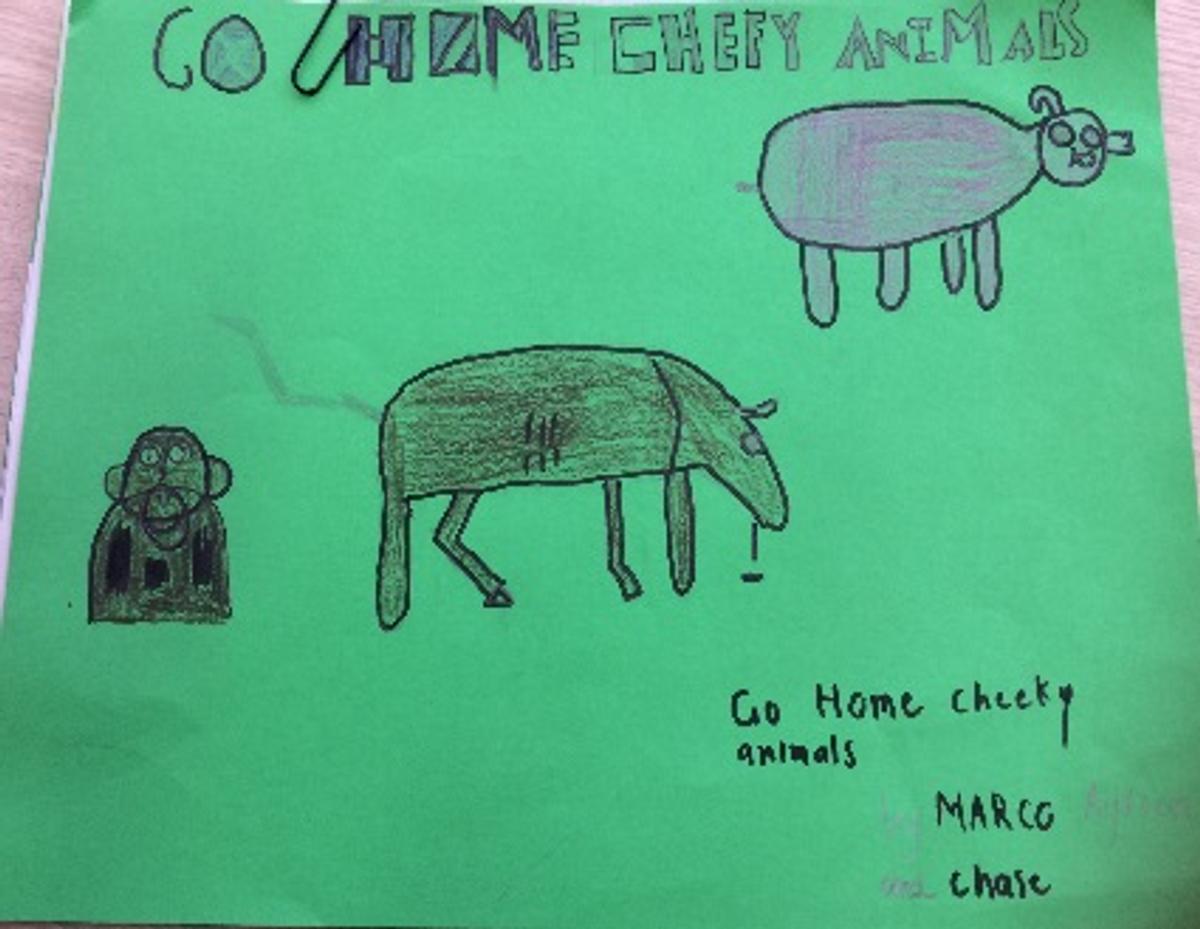 GO HOME CHEFY ANIMALS
Go Home cheeky
animals
by MARCO
and chase